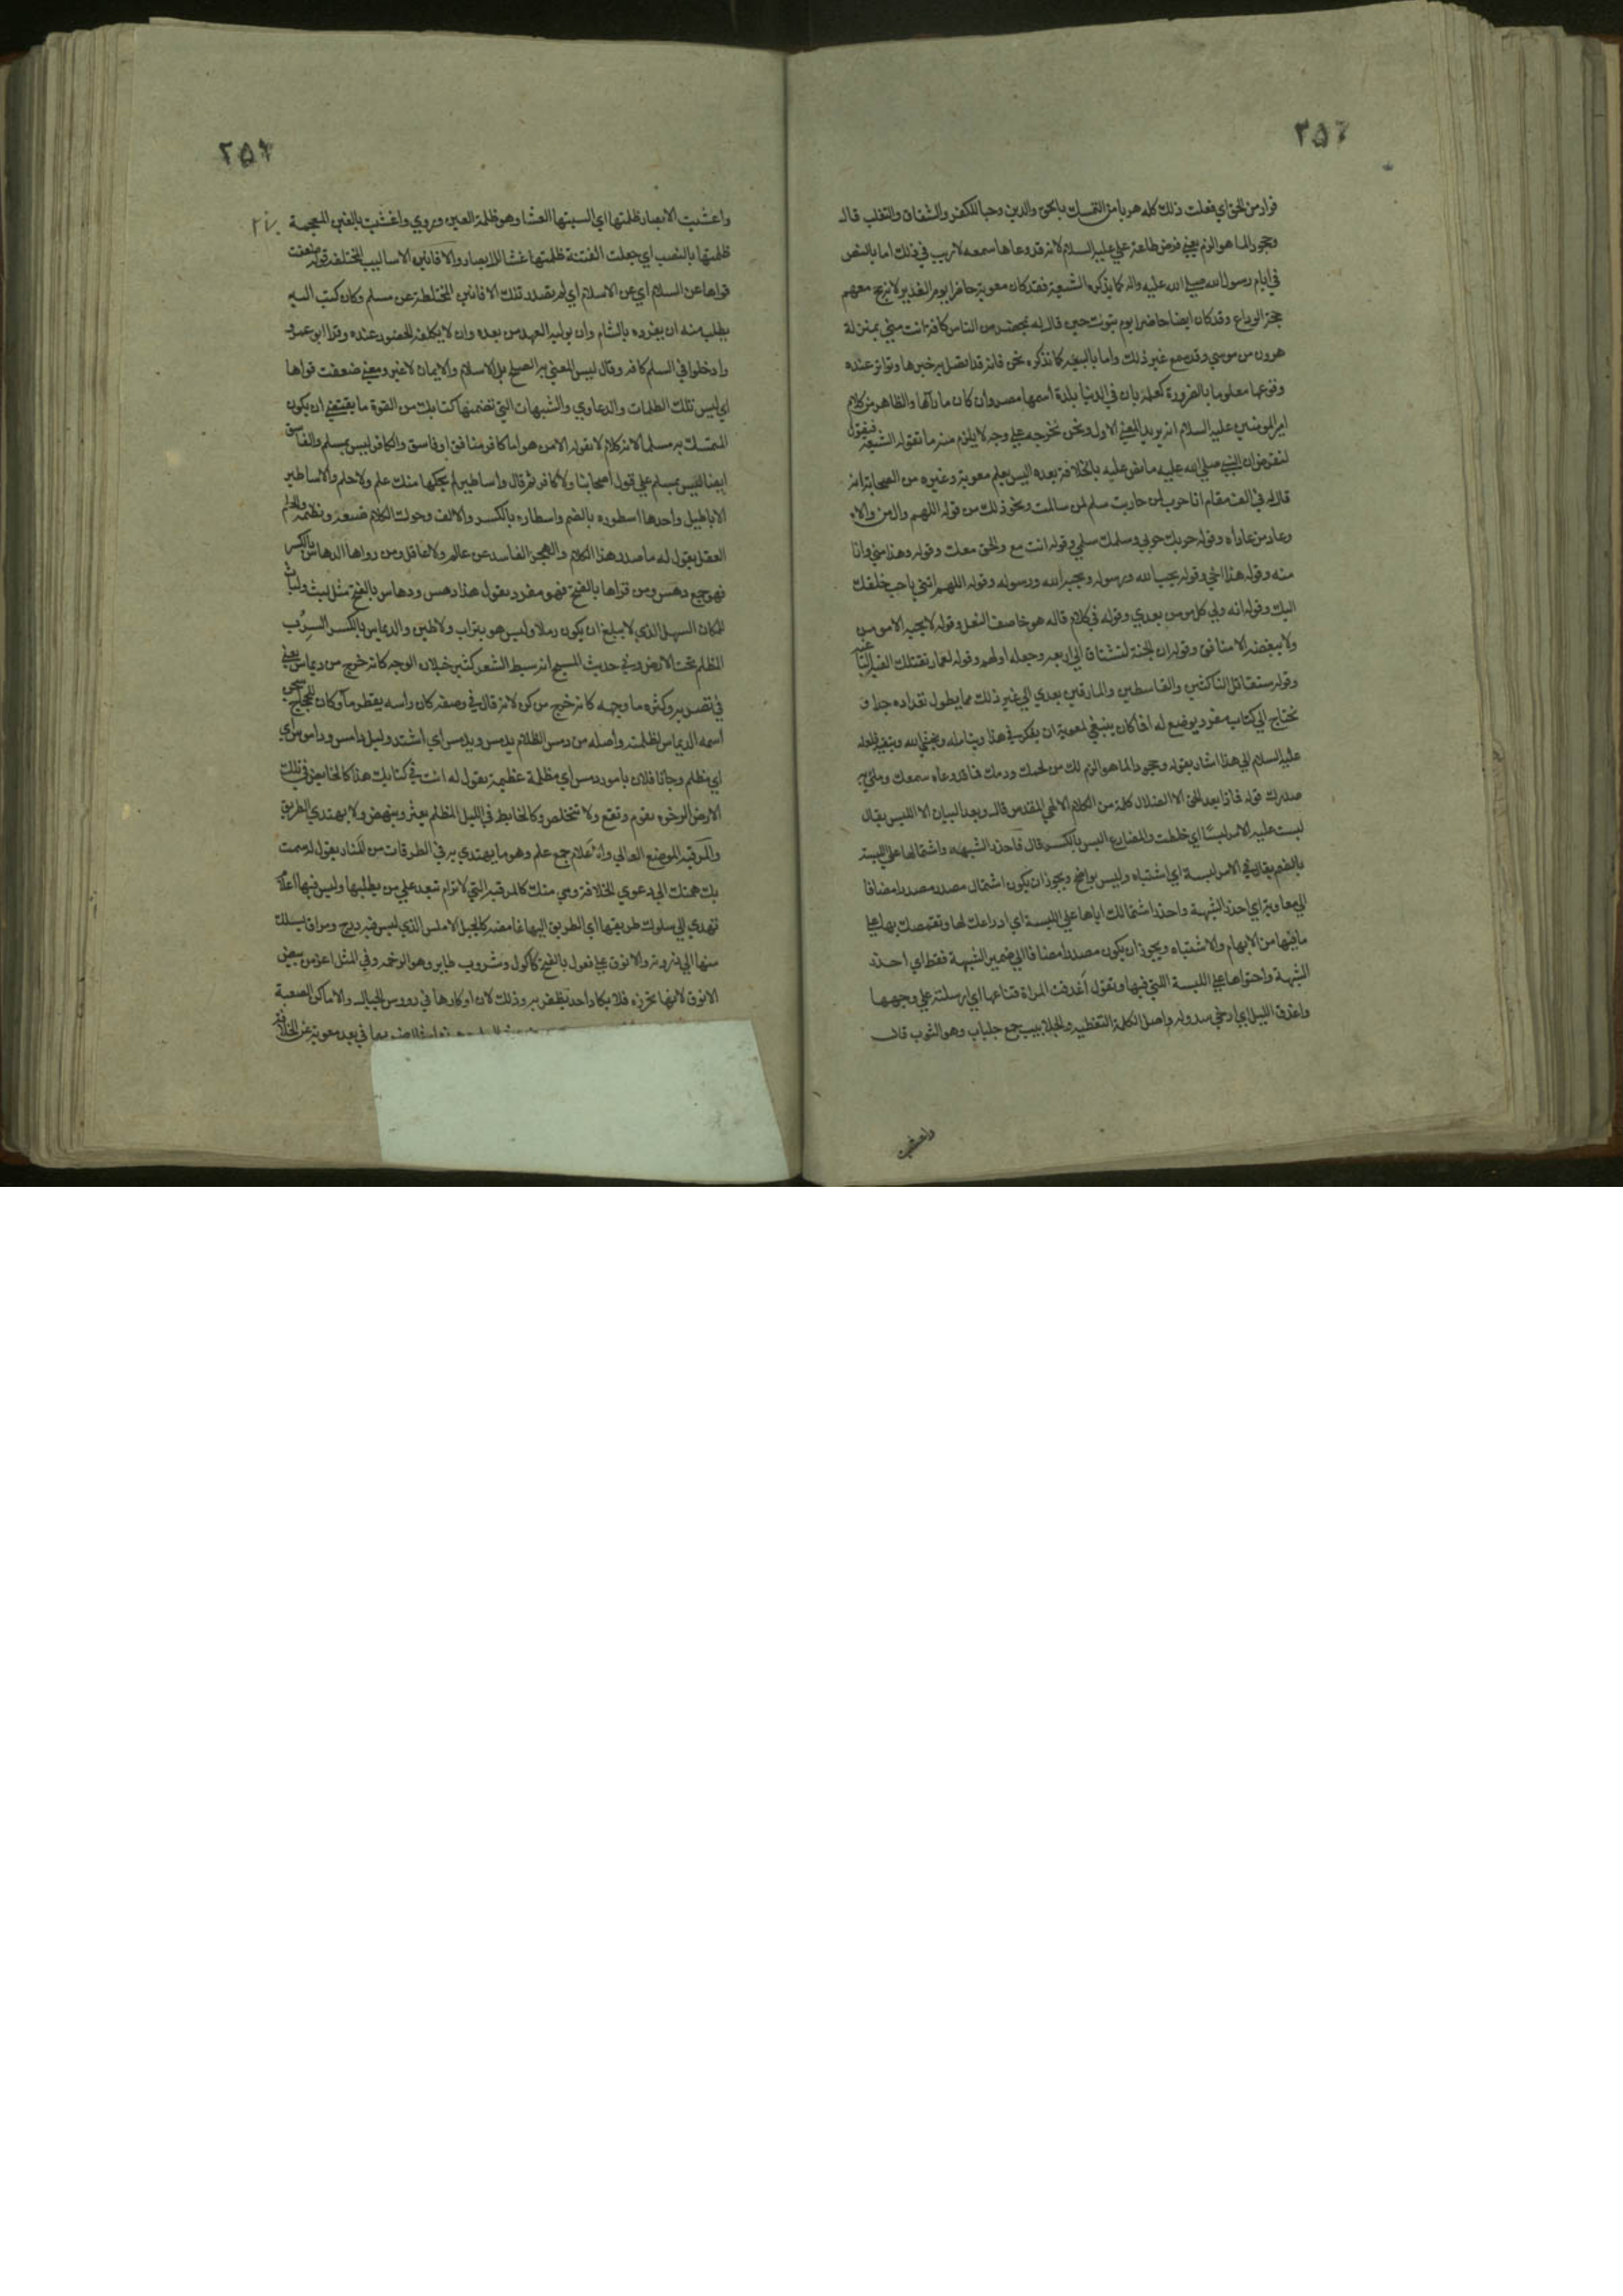 ٣٥٦
فرارا من الحق اي فعلت ذلك كله هربا من التمسك بالحق والدين وحبا للكفر والشقاق والتغلب قال
وجحودا لما هو الزم يعني فرض طاعة علي عليه السلام لانه قد وعاها سمعه لا ريب في ذلك اما بالنص
في ايام رسول الله صلي الله عليه واله كما يذكره الشيعة فقد كان معوية حاضرا يوم الغدير لانه حج معهم
حجة الوداع وقد كان ايضا حاضرا يوم تبوك حين قال له بمحضر من الناس كافة انت مني بمنزلة
هرون من موسي وقد سمع غير ذلك واما بالبيعة كما نذكره نحن فانه قد اتصل به خبرها وتواتر عنده
وقوعها معلوما بالضرورة كعلمه بان في الدنيا بلدة اسمها مصر وان كان ما رآها والظاهر من كلام
امير المومنين عليه السلام انه يريد المعني الاول ونحن نخرجه علي وجه لا يلزم منه ما تقوله الشيعة فنقول
لنفرض ان النبي صلي الله عليه ما نص عليه بالخلافة بعده اليس يعلم معوية وغيره من الصحابة انه
قال له في الف مقام انا حرب لمن حاربت سلم لمن سالمت ونحو ذلك من قوله اللهم وال من والاه
وعاد من عاداه وقوله حربك حربي وسلمك سلمي وقوله انت مع والحق معك وقوله وهذا مني وانا
منه وقوله هذا اخي وقوله يحب الله ورسوله ويحبه الله ورسوله وقوله اللهم ائتني باحب خلقك
اليك وقوله انه ولي كل مومن بعدي وقوله في كلام قاله هو خاصف النعل وقوله لا يحبه الا مومن
ولا يبغضه الا منافق وقوله ان الجنة لتشتاق الي اربعة وجعله اولهم وقوله لعمار تقتلك الفية الباغية
وقوله ستقاتل الناكثين والقاسطين والمارقين بعدي الي غير ذلك مما يطول تعداده جدا و
نحتاج الي كتاب مفرد يوضع له افما كان ينبغي لمعوية ان يفكر في هذا ويتامله ويخشي الله ويتقيه فلعله
عليه السلام الي هذا اشار بقوله وجحودا لما هو الزم لك من لحمك ودمك مما قد وعاه سمعك وملئ به
صدرك قوله فماذا بعد الحق الا الضلال كلمة من الكلام الالهي المقدس قال وبعد البيان الا اللبس يقال
لبست عليه الامر لبسا اي خلطت والمضارع البس بالكسر قال فاحذر الشبهة واشتمالها علي اللبسة
بالضم يقال في الامر لبسة اي اشتباه وليس بواضح ويجوز ان يكون اشتمال مصدرا مضافا
الي معاوية اي احذر الشبهة واحذر اشتمالك اياها علي اللبسة اي ادراعك لها وتقمصك بها علي
ما فيها من الابهام والاشتباه ويجوز ان يكون مصدرا مضافا الي ضمير الشبهة فقط اي احذر
الشبهة واحتواها علي اللبسة اللتي فيها وتقول اغدفت المراة قناعها اي ارسلته علي وجهها
واغدف الليل اي ارخي سدوله واصل الكلمة التغطية والجلابيب جمع جلباب وهو الثوب قال
واعشت
٢٥٧
٢٧٠
واعشت الابصار ظلمتها اي البستها العشا وهو ظلمة العين وروي واغشيت بالغين المعجمة
ظلمتها بالنصب اي جعلت الفتنة ظلمتها غشا للابصار والافانين الاساليب المختلفة قوله ضعفت
قواها عن السلام اي عن الاسلام اي لم تصدر تلك الافانين المختلطة عن مسلم وكان كتب اليه
يطلب منه ان يفرده بالشام وان يوليه العهد من بعده وان لا يكلفه الحضور عنده وقرا ابو عمرو
وادخلوا في السلم كافه وقال ليس المعني به الصلح بل الاسلام والايمان لا غير ومعني ضعفت قواها
اي ليس تلك الطلبات والدعاوي والشبهات التي تضمنها كتابك من القوة ما يقتضي ان يكون
المتمسك به مسلما لانه كلام لا يقوله الا من هو اما كافر منافق او فاسق والكافر ليس بمسلم والفاسق
ايضا ليس بمسلم علي قول اصحابنا ولا كافر ثم قال واساطير لم يحكها منك علم ولا حلم والاساطير
الاباطيل واحدها اسطوره بالضم واسطاره بالكسر والالف وحوك الكلام صنعة ونظمه والحلم
العقل يقول له ما صدر هذا الكلام والهجر الفاسد عن عالم ولا عاقل ومن رواها الدهاس بالكسر
فهو جمع دهس ومن قراها بالفتح فهو مفرد يقول هذا دهس ودهاس بالفتح مثل لبث ولباث
للمكان السهل الذي لا يبلغ ان يكون رملا وليس هو بتراب ولا طين والديماس بالكسر السرب
المظلم تحت الارض وفي حديث المسيح انه سبط الشعر كثير خيلان الوجه كانه خرج من ديماس يعني
في نضرته وكثرة ما وجهه كانه خرج من كن لانه قال في وصفه كان راسه يقطر ما وكان للحجاج سجن
اسمه الديماس لظلمته واصله من دمس الظلام يدمس ويدمس اي اشتد وليل دامس وداموس اي
اي مظلم وجانا فلان بامور دمس اي مظلمة عظيمة يقول له انت في كتابك هذا كالخايض في تلك
الارض الرخوه تقوم وتقع ولا تتخلص وكالخابط في الليل المظلم يعثر وينهض ولا يهتدي الطريق
والمرقبة الموضع العالي والاعلام جمع علم وهو ما يهتدي به في الطرقات من المنار يقول له سمت
بك همتك الي دعوي الخلافة وهي منك كالمرقبة التي لا ترام تبعد علي من يطلبها وليس فيها اعلام
تهدي الي سلوك طريقها اي الطريق اليها غامضة كالجبل الاملس الذي ليس فيه درج ومراق يسلك
منها الي ذروته والانوق علي فعول بالفتح كاكول وشروب طاير وهو الرخمة وفي المثل اعز من بيض
الانوق لانها تحرزه فلا يكاد احد يظفر به وذلك لان اوكارها في رووس الجبال والاماكن الصعبة
في بعد معوية عن الخلافة